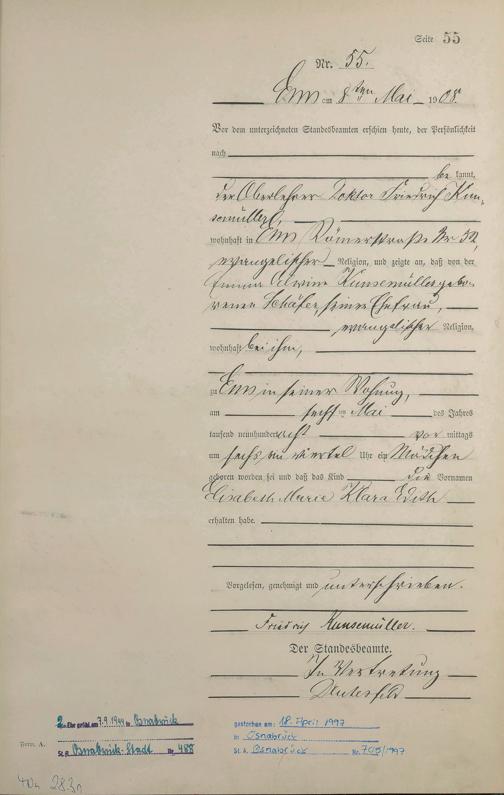 Seite 55
Nr. 55.
Ems am 8ten Mai 1908.
Vor dem unterzeichneten Standesbeamten erschien heute, der Persönlichkeit
nach
be kannt,
der Oberlehrer Doktor Friedrich Kun-
semüller,
wohnhaft in Ems Römerstraße Nr 32,
evangelischer Religion, und zeigte an, daß von der
Emma Alwine Kunsemüller gebo-
renen Schäfer, seiner Ehefrau,
evangelischer Religion,
wohnhaft bei ihm,
zu Ems in seiner Wohnung,
am sechsten Mai des Jahres
tausend neunhundert acht vor mittags
um sechs ein viertel Uhr ein Mädchen
geboren worden sei und daß das Kind die Vornamen
Elisabeth Maria Klara Edith
erhalten habe.
Vorgelesen, genehmigt und unterschrieben.
Friedrich Kunsemüller.
Der Standesbeamte.
In Vertretung
2. Ehe geschl. am 7.9.1944 in Osnabrück
St.A. Osnabrück-Stadt Nr. 488
gestorben am: 18. April 1997
in Osnabrück
St. A. Osnabrück Nr. 709/1997
Form. A.